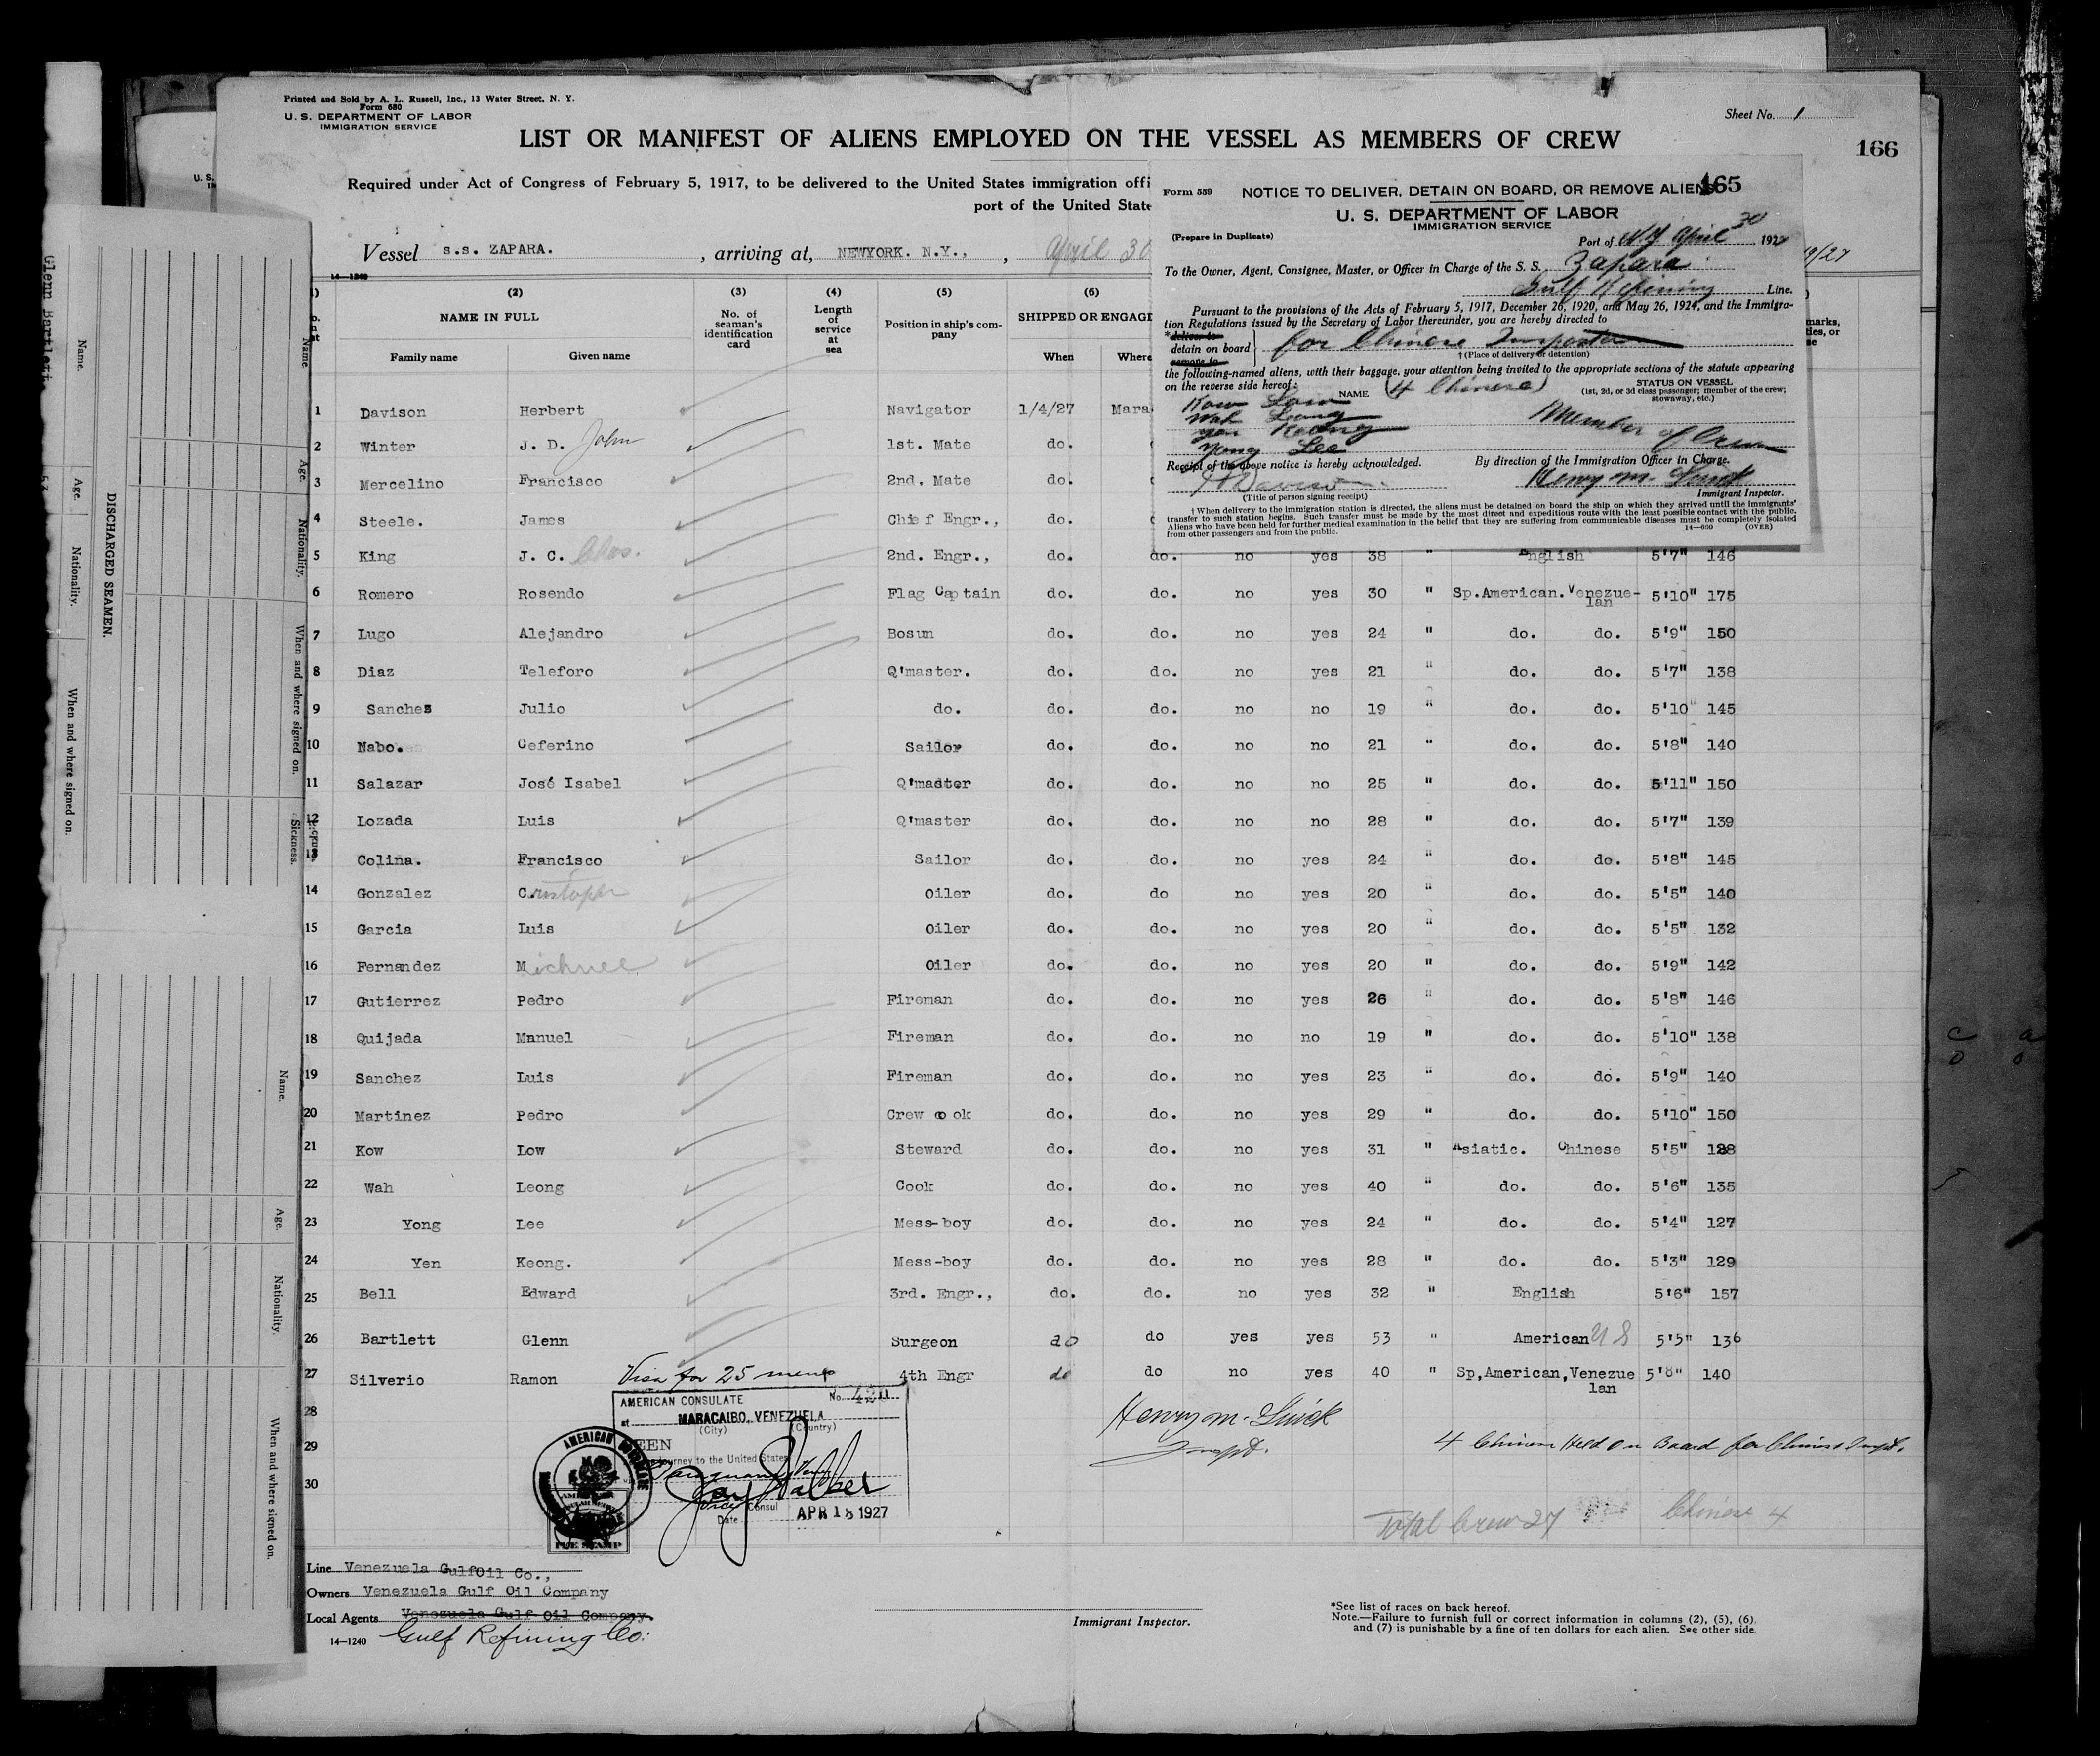 Printed and Sold by A. L. Russell, Inc., 13 Water Street, N. Y.
Form 680
U. S. DEPARTMENT OF LABOR
IMMIGRATION SERVICE
Sheet No. 1
LIST OR MANIFEST OF ALIENS EMPLOYED ON THE VESSEL AS MEMBERS OF CREW
166
Required under Act of Congress of February 5, 1917, to be delivered to the United States immigration offi
port of the United State
Vessel s.s. ZAPARA. , arriving at, NEWYORK. N.Y., , April 30
14—1240
(2) (3) (4) (5) (6)
NAME IN FULL No. of seaman's identification card Length of service at sea Position in ship's company SHIPPED OR ENGAG
Family name Given name When Where
Form 559 NOTICE TO DELIVER, DETAIN ON BOARD, OR REMOVE ALIENS 165
U. S. DEPARTMENT OF LABOR
IMMIGRATION SERVICE
(Prepare in Duplicate)
Port of N.Y. April 30 1927
To the Owner, Agent, Consignee, Master, or Officer in Charge of the S. S. Zapara
Gulf Refining Line.
Pursuant to the provisions of the Acts of February 5, 1917, December 26, 1920, and May 26, 1924, and the Immigra-
tion Regulations issued by the Secretary of Labor thereunder, you are hereby directed to
*deliver to
detain on board for Chinese
remove to
† (Place of delivery or detention)
the following-named aliens, with their baggage, your attention being invited to the appropriate sections of the statute appearing
on the reverse side hereof:
NAME (4 Chinese) STATUS ON VESSEL
(1st, 2d, or 3d class passenger; member of the crew; stowaway, etc.)
Kow Low
Wah Leong
Yen Keong
Yong Lee
Member of Crew
Receipt of the above notice is hereby acknowledged. By direction of the Immigration Officer in Charge.
H Davison Henry M.
(Title of person signing receipt) Immigrant Inspector.
† When delivery to the immigration station is directed, the aliens must be detained on board the ship on which they arrived until the immigrants'
transfer to such station begins. Such transfer must be made by the most direct and expeditious route with the least possible contact with the public.
Aliens who have been held for further medical examination in the belief that they are suffering from communicable diseases must be completely isolated
from other passengers and from the public.
14—690 (OVER)
1 Davison Herbert Navigator 1/4/27 Mara
2 Winter J. D. John 1st. Mate do.
3 Mercelino Francisco 2nd. Mate do.
4 Steele. James Chief Engr., do.
5 King J. C. Chas. 2nd. Engr., do. do. no yes 38 " English 5'7" 146
6 Romero Rosendo Flag Captain do. do. no yes 30 " Sp.American. Venezue-lan 5'10" 175
7 Lugo Alejandro Bosun do. do. no yes 24 " do. do. 5'9" 150
8 Diaz Teleforo Q'master. do. do. no yes 21 " do. do. 5'7" 138
9 Sanches Julio do. do. do. no no 19 " do. do. 5'10" 145
10 Nabo. Ceferino Sailor do. do. no no 21 " do. do. 5'8" 140
11 Salazar José Isabel Q'master do. do. no no 25 " do. do. 5'11" 150
12 Lozada Luis Q'master do. do. no no 28 " do. do. 5'7" 139
13 Colina. Francisco Sailor do. do. no yes 24 " do. do. 5'8" 145
14 Gonzalez Cristopher Oiler do. do no yes 20 " do. do. 5'5" 140
15 Garcia Luis Oiler do. do. no yes 20 " do. do. 5'5" 132
16 Fernandez M Oiler do. do. no yes 20 " do. do. 5'9" 142
17 Gutierrez Pedro Fireman do. do. no yes 26 " do. do. 5'8" 146
18 Quijada Manuel Fireman do. do. no no 19 " do. do. 5'10" 138
19 Sanchez Luis Fireman do. do. no yes 23 " do. do. 5'9" 140
20 Martinez Pedro Crew cook do. do. no yes 29 " do. do. 5'10" 150
21 Kow Low Steward do. do. no yes 31 " Asiatic. Chinese 5'5" 128
22 Wah Leong Cook do. do. no yes 40 " do. do. 5'6" 135
23 Yong Lee Mess-boy do. do. no yes 24 " do. do. 5'4" 127
24 Yen Keong. Mess-boy do. do. no yes 28 " do. do. 5'3" 129
25 Bell Edward 3rd. Engr., do. do. no yes 32 " English 5'6" 157
26 Bartlett Glenn Surgeon do do yes yes 53 " American U S 5'5" 136
27 Silverio Ramon 4th Engr do do no yes 40 " Sp,American,Venezue lan 5'8" 140
28
29
30
Visa for 25 men
AMERICAN CONSULATE No. 420
at MARACAIBO, VENEZUELA
(City) (Country)
SEEN
journey to the United States
Jay Walker
Vice Consul
Date APR 18 1927
FEE STAMP
Henry M.
Inspt.
4 Chinese Held on Board for Chinese Inspt.
Total Crew 27 Chinese 4
Line Venezuela GulfOil Co.,
Owners Venezuela Gulf Oil Company
Local Agents Venezuela Gulf Oil Company.
14—1240 Gulf Refining Co.
Immigrant Inspector.
*See list of races on back hereof.
Note.—Failure to furnish full or correct information in columns (2), (5), (6),
and (7) is punishable by a fine of ten dollars for each alien. See other side.
Glenn Bartlett
DISCHARGED SEAMEN.
Name. Age. Nationality. When and where signed on.
Name. Age. Nationality. When and where signed on. Sickness.
Name. Age. Nationality. When and where signed on.